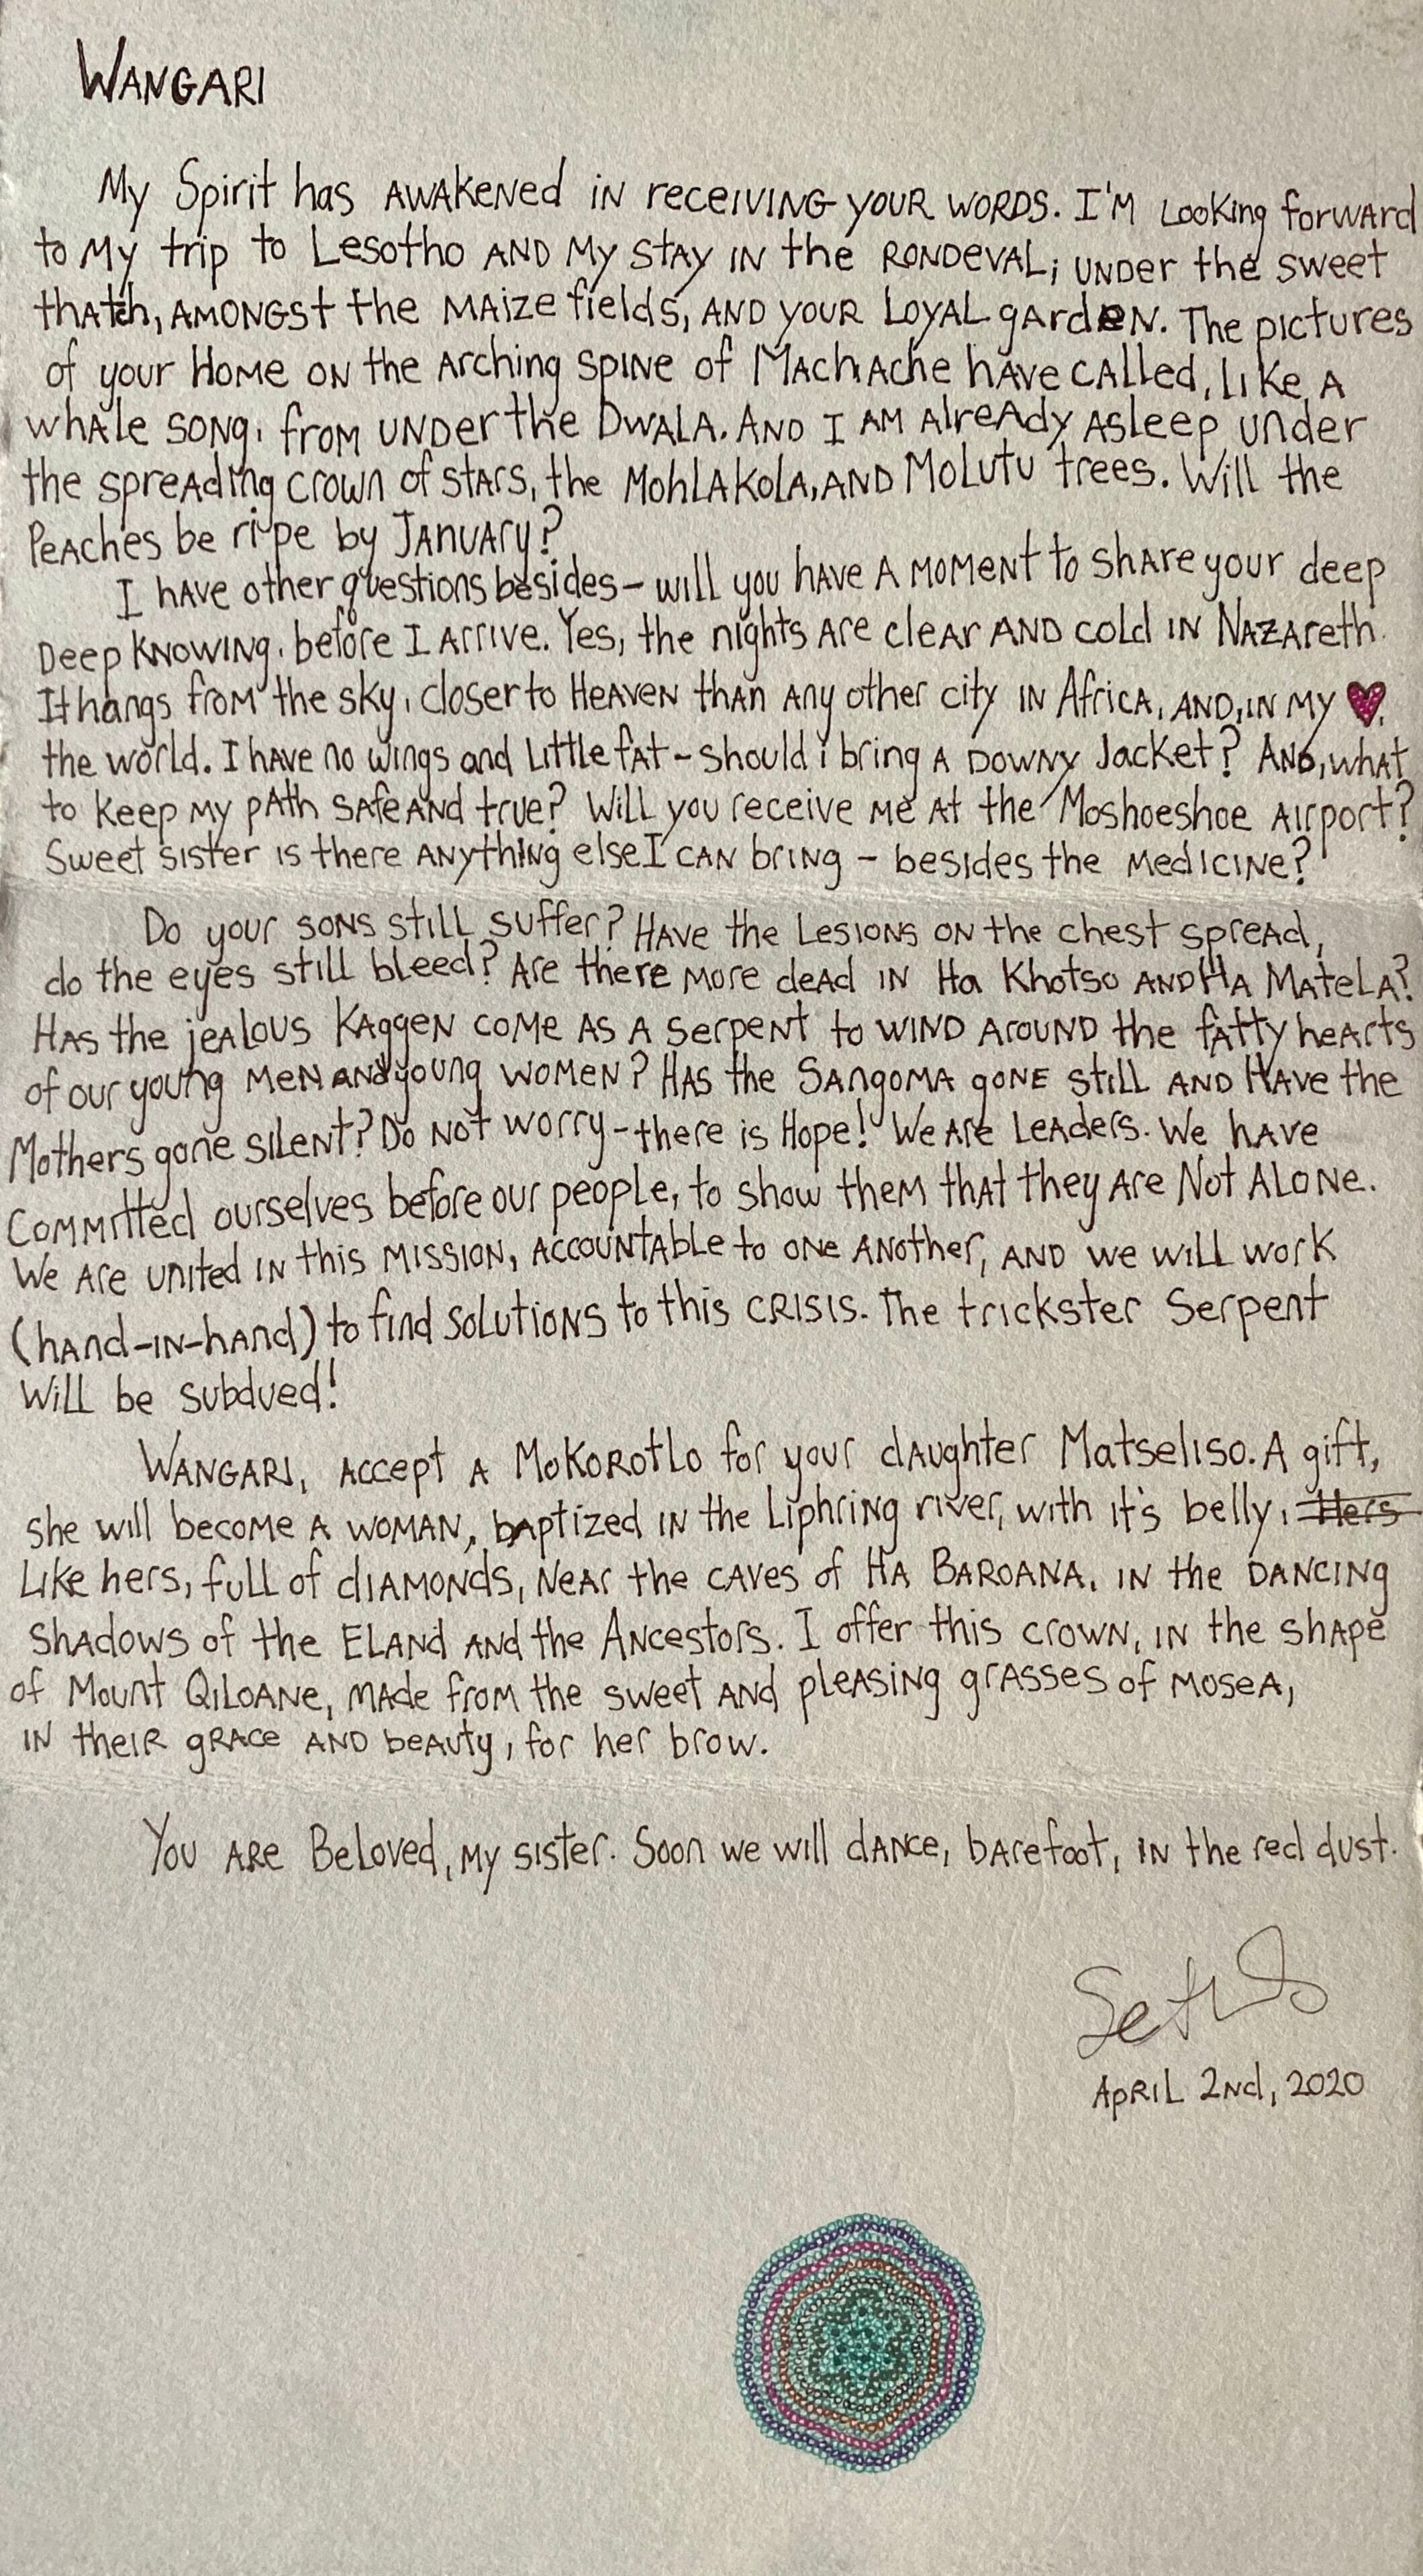 WANGARI
My Spirit has AWAKENED IN receIVING YOUR WORDS. I'M LOOKING forWARD
to My trip to Lesotho AND My STAY IN the RONDEVAL; UNDER the sweet
thatch, AMONGST the MAIZE fields, AND YOUR LOYAL GARDEN. The pictures
of your HOME ON the Arching SPINE of MAChAche hAVE CALLed, LIKE A
whALe SONG, from UNDER the DWALA. AND I AM AlreADy ASleep under
the spreading crown of STARS, the MOhLAKOLA, AND MOLUTU trees. Will the
PeAches be ripe by JANUARY?
I hAVE other questions besides - will you hAVE A MOMENT to shARe your deep
Deep KNOWING, before I ARRIVE. Yes, the nights ARE cleAr AND cold IN NAZAReth.
It hangs from the sky, closer to HEAVEN thAN ANy other city IN AfricA, AND, IN My ♥,
the world. I hAve no wings and Little fAT - should i bring A DOWNY JACKET? AND, whAT
to Keep My pAth SAfe AND true? Will you receive Me At the Moshoeshoe AIrport?
Sweet sister is there ANYthING else I CAN brING - besides the MedICINe?
Do your SONS still suffer? HAVE the LesIONS ON the chest spreAD,
do the eyes still bleed? Are there MORE deAd IN Ha Khotso AND HA MATELA?
HAS the jeALOUS KAggEN COME AS A serpENT to WIND AROUND the fATTy heArts
of our young MEN and young WOMEN? HAS the SANgOMA gONE STILL AND HAVE the
Mothers gone SILENT? Do NOT worry - there is Hope! We Are LeAders. We hAVE
COMMItted ourselves before our people, to show theM thAT they Are Not ALONe.
We ARe united IN this MISSION, ACCOUNTABle to ONE ANother, AND we wILL work
(hAnd-IN-hAnd) to find SOLUTIONS to this CRISIS. The trickster Serpent
WILL be subdued!
WANGARI, ACCept A MOKOROTLO for your dAughter Matseliso. A gift,
she will become A WOMAN, bAptized IN the Liphiring river, with it's belly, Hers
LIKe hers, full of dIAMONds, NeAr the CAVES of HA BAROANA, IN the DANCING
ShADOWS of the ELANd AND the ANcestors. I offer this crown, IN the shApe
of MOUNT QILOANE, MAde from the sweet AND pleASING grASSes of MOSEA,
IN theIR grACe AND beAuty, for her brow.
You ARe BeLoved, My sister. Soon we will dANCe, bArefoot, IN the red dust.
APRIL 2Nd, 2020